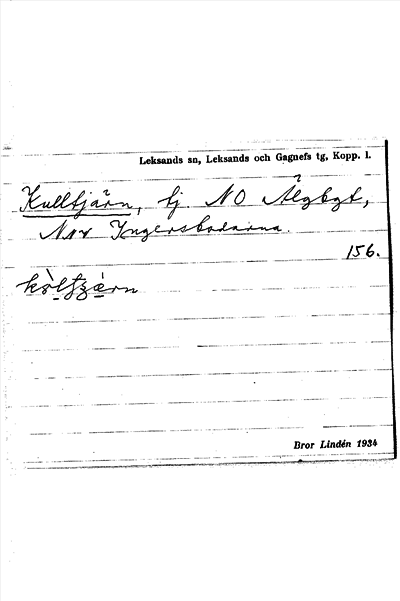 Leksands sn, Leksands och Gagnefs tg, Kopp. l.
Kulltjärn, tj. NO Ålgbgt,
NNV Yngersbodarna.
156.
Bror Lindén 1934